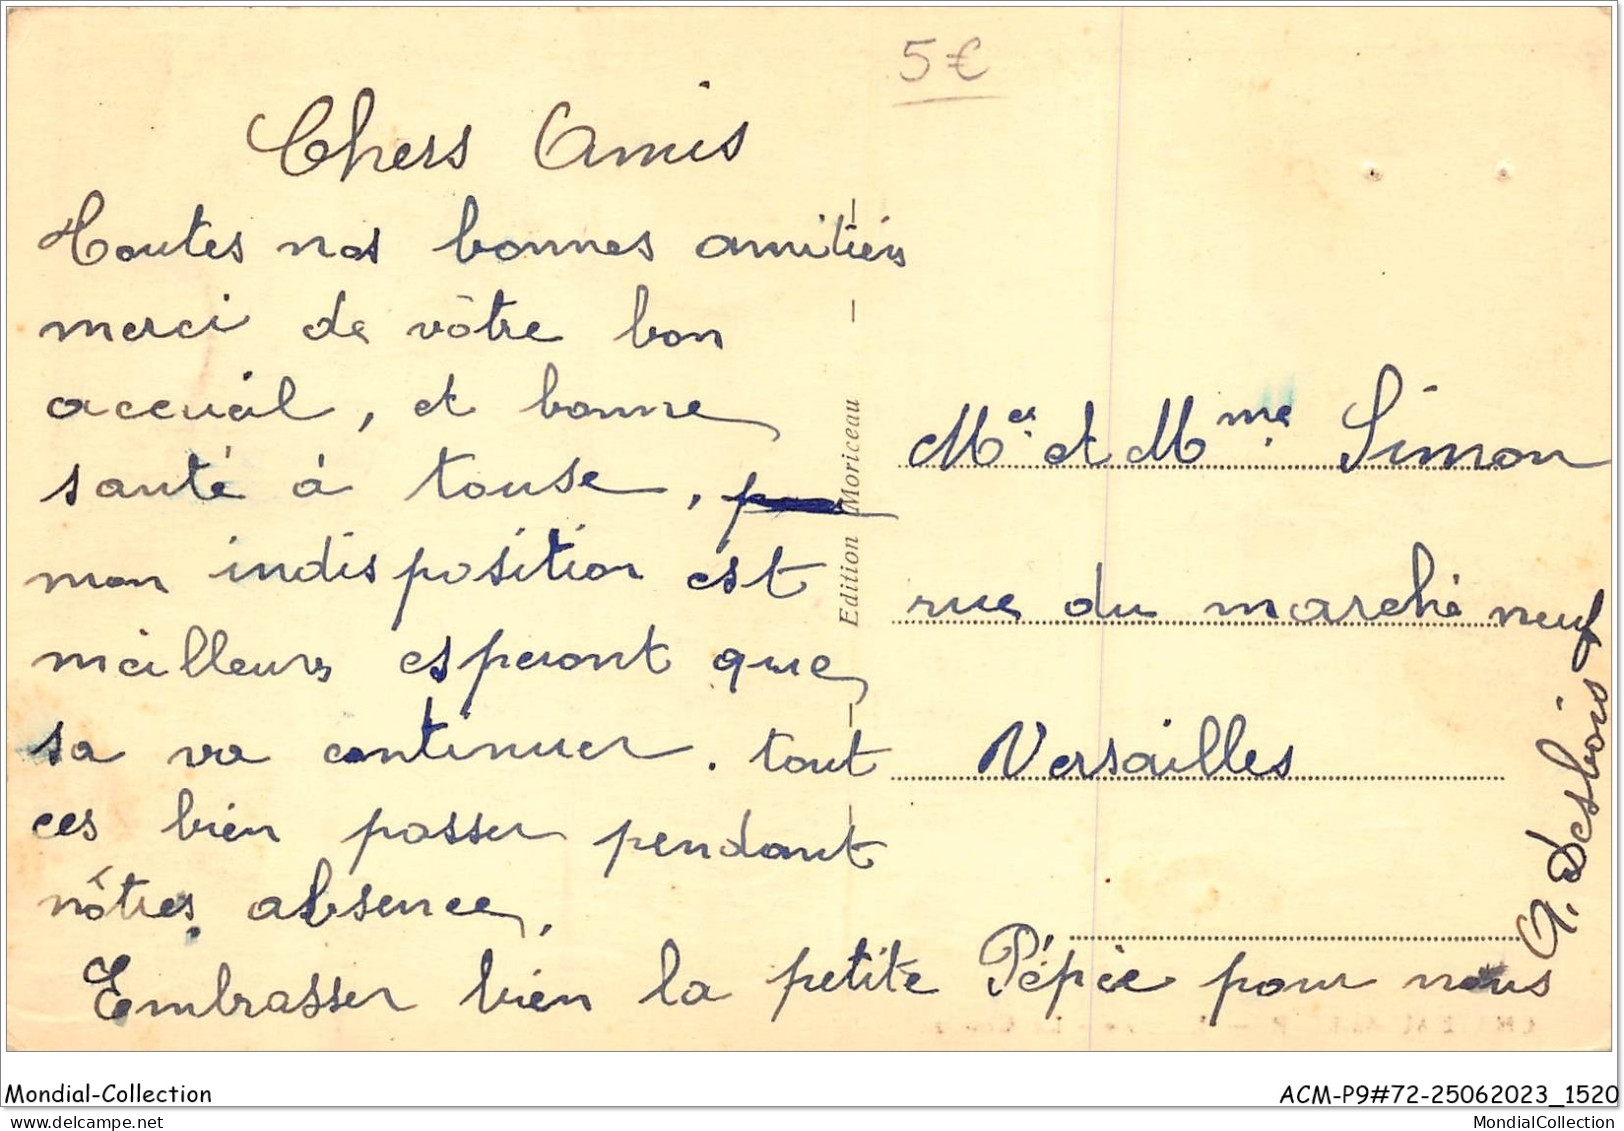 5€
Chers Amis
Toutes nos bonnes amitiés
merci de vôtre bon
acceuil, et bonne
santé à touse,
mon indisposition est
meilleurs esperont que
sa va continuer. tout
ces bien passer pendant
nôtres absence.
Embrasser bien la petite Pépée pour nous
Edition Moriceau
Mer et Mme Simon
rue du marché neuf
Versailles
Desbois
Mondial-Collection
ACM-P9#72-25062023_1520
www.delcampe.net
MondialCollection